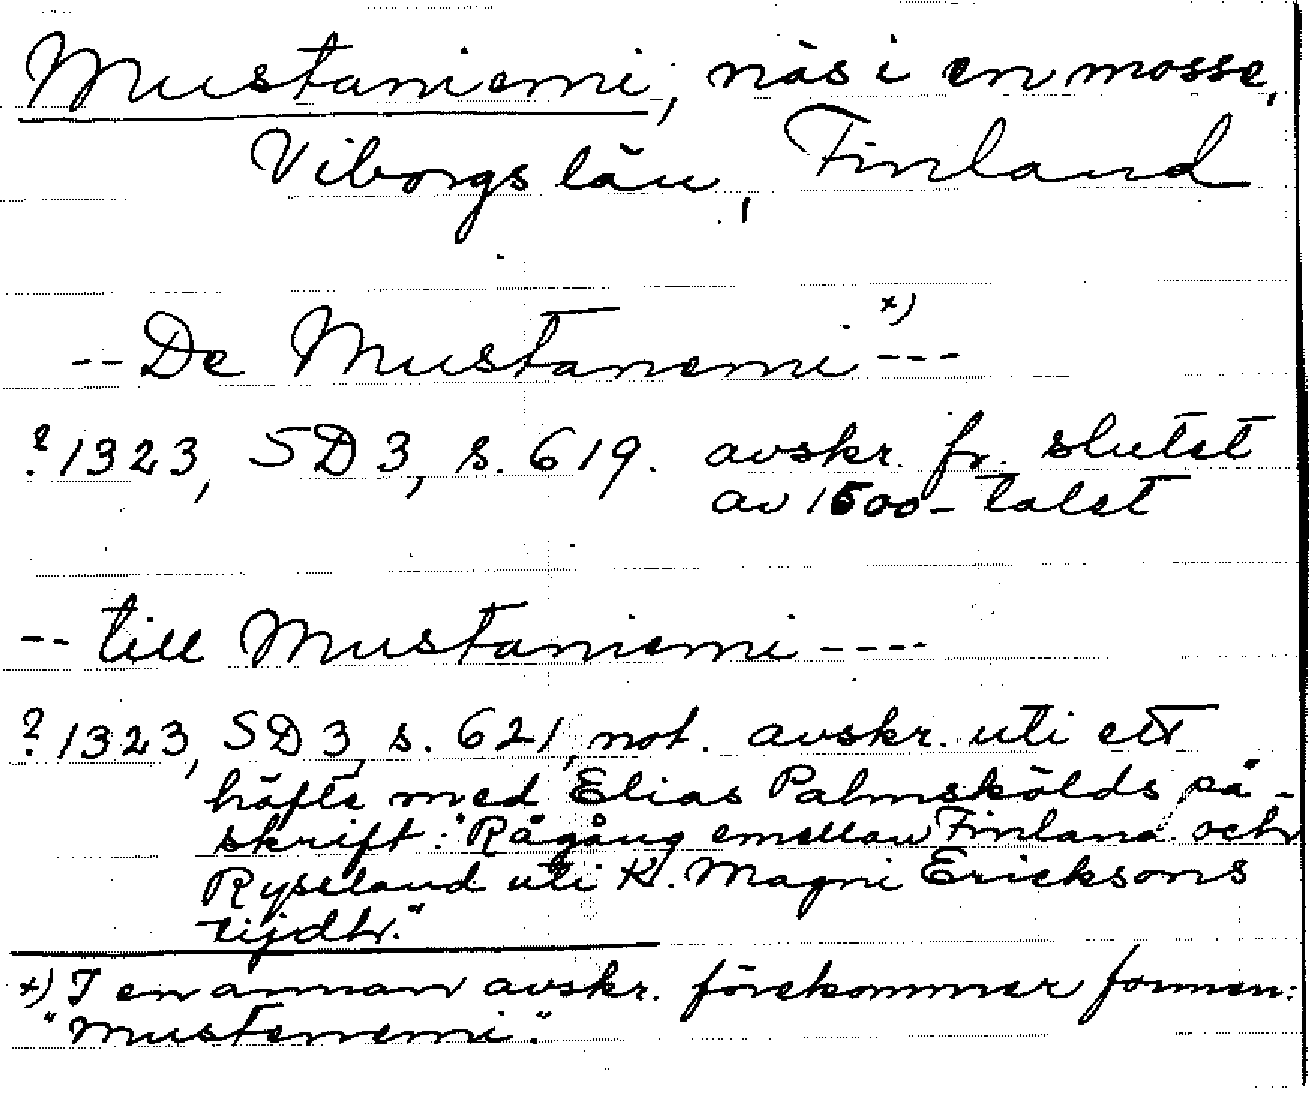 Mustaniemi, näs i en mosse,
Viborgs län, Finland
-- De Mustanemi x) ---
? 1323, SD 3, s. 619. avskr. fr. slutet
av 1500-talet
-- till Mustaniemi ----
? 1323, SD 3, s. 621, not. avskr. uti ett
häfte med Elias Palmskölds på-
skrift: "Rågång emellan Finland och
Rysseland uti K. Magni Ericksons
tijdh."
x) I en annan avskr. förekommer formen:
"Mustenemi."